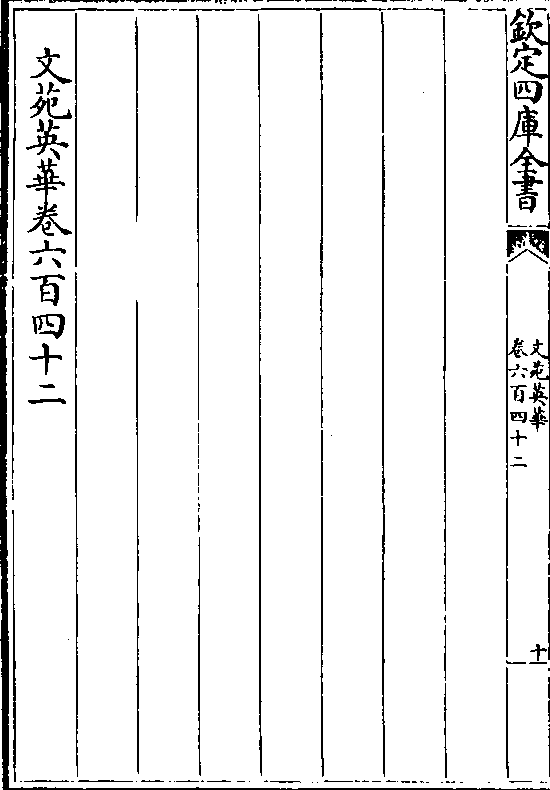 欽定四庫全書
文苑英華
卷六百四十二
十
文苑英華卷六百四十二